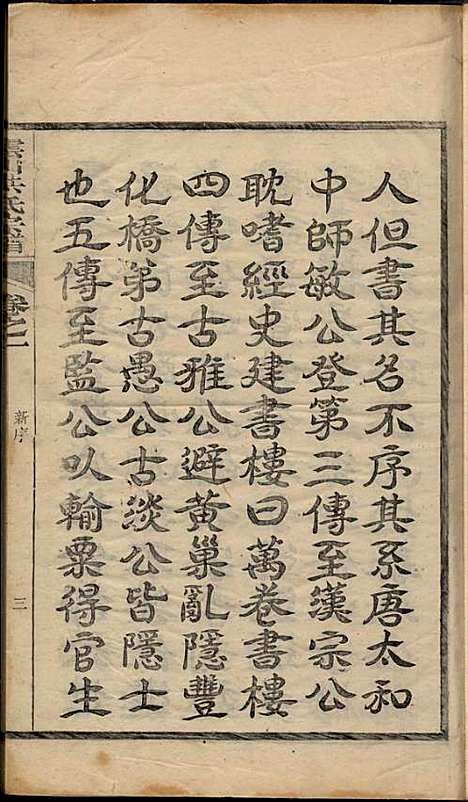 人但書其名不序其系唐太和
中師敏公登第三傳至漢宗公
耽嗜經史建書樓曰萬卷書樓
四傳至古雅公避黃巢亂隱豐
化橋弟古愚公古淡公皆隱士
也五傳至監公以輸粟得官生
氏宗譜
卷之一
新序
三